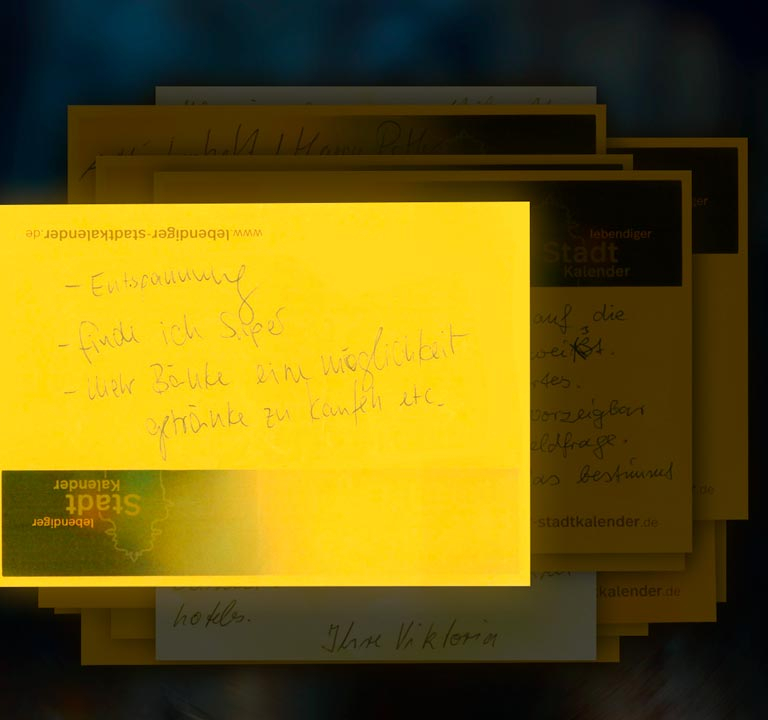 Harry Potter
ger
lebendiger
Stadt
Kalender
www.lebendiger-stadtkalender.de
- Entspannung
- finde ich Super
- mehr Bänke eine möglichkeit
getränke zu kaufen etc.
auf die
rtes.
vorzeigbar
eldfrage.
as bestimmt
-stadtkalender.de
de
Stadt
Kalender
lebendiger
kalender.de
hotels.
Ihre Viktoria